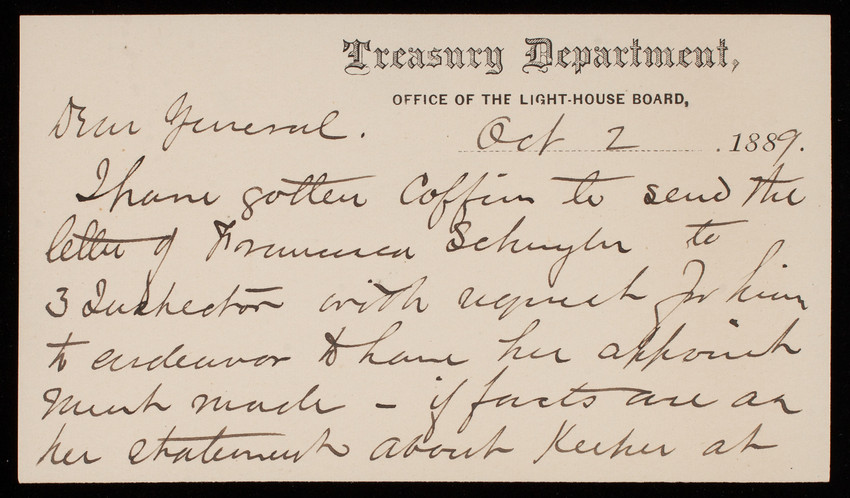 Treasury Department,
OFFICE OF THE LIGHT-HOUSE BOARD,
Dear General.
Oct 2 . 1889.
I have gotten Coffin to send the
letter of Francisca Schuyler to
3 Inspector with request for him
to endeavor to have her appoint
ment made – if facts are as
her statement about Keeper at